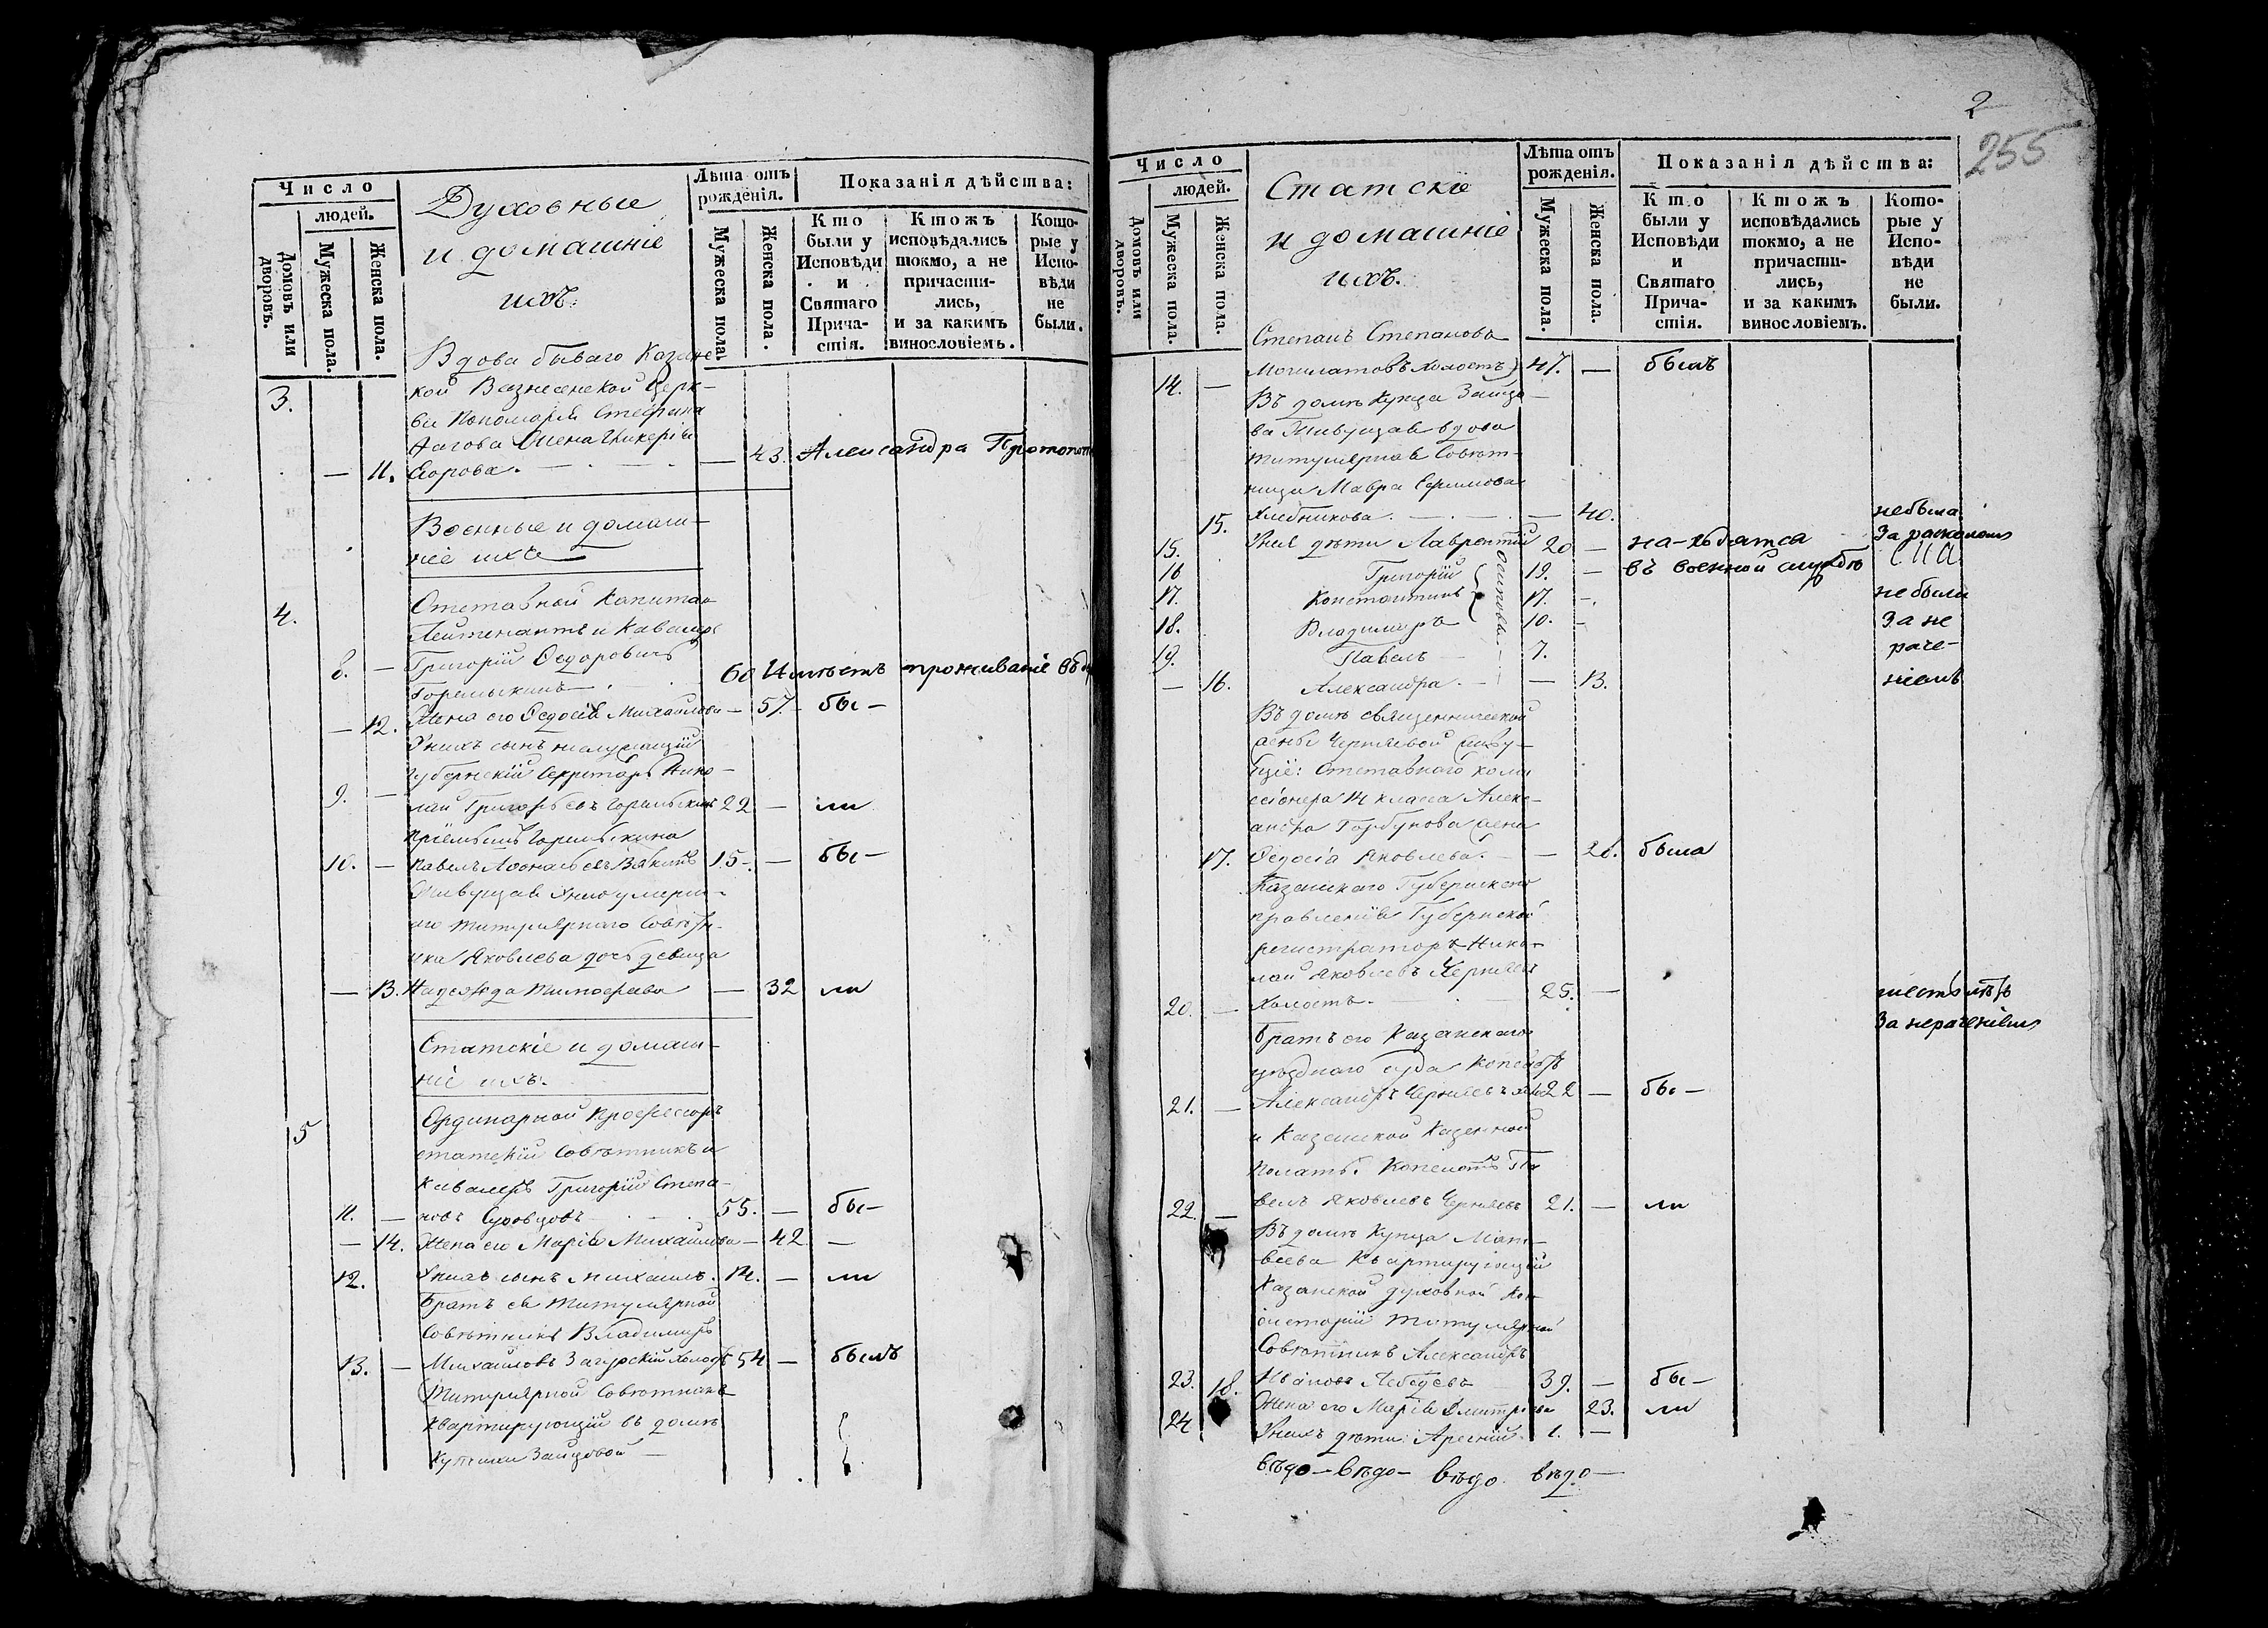 Число
людей.
Домовъ или дворовъ.
Мужеска пола.
Женска пола.
Духовные
и домашніе
ихъ.
Лѣта отъ
рожденія.
Мужеска пола.
Женска пола.
Показанія дѣйства:
Кто
были у
Исповѣди
и
Святаго
Прича-
стія.
Ктожъ
исповѣдались
токмо, а не
причасти-
лись,
и за какимъ
винословіемъ.
Кото-
рые у
Испо-
вѣди
не
были.
3.
Вдова бываго Казанс
кой Вознесенской Церк-
ви Пономаря Стефана
жена Гликерія
— 11. Егорова. — 43. Александра
Военные и домаш-
ніе ихъ
4.
Отставной Капитан
Лейтенантъ и Кавалеръ
8. — Григорій Ѳедоровичъ
Горемыкинъ 60 Имѣетъ проживаніе въ
— 12. Жена его Ѳедосія Михайлова — 57. бы-
У нихъ сынъ неслужащій
Губернскій Секретарь Нико-
9. — лай Григорьевъ Горемыкинъ 29 — ли
Пріемышъ Горемыкина
10. — Павелъ 15. — бы-
Живущая у него умерш-
аго титулярнаго Совѣтн-
ика Яковлева дочь девица
— 13. Надежда Тимофеева — 32 ли
Статскіе и домаш-
ніе ихъ.
5
Ординарной Професоръ
статскій Совѣтникъ и
Кавалеръ Григорій Степа-
11. — новъ Суровцовъ 55. — бы-
— 14. Жена его Марія Михайлова — 42 —
12. У нихъ сынъ Михаилъ. 14. — ли
Братъ ея титулярной
Совѣтникъ Владимиръ
13. — Михайловъ Загурскій холостъ 54 — былъ
Титулярной Совѣтникъ
квартирующій въ домѣ
купчихи Зайцовой —
2
255
Число
людей.
Домовъ или дворовъ.
Мужеска пола.
Женска пола.
Статскіе
и домашніе
ихъ.
Лѣта отъ
рожденія.
Мужеска пола.
Женска пола.
Показанія дѣйства:
Кто
были у
Исповѣди
и
Святаго
Прича-
стія.
Ктожъ
исповѣдались
токмо, а не
причасти-
лись,
и за какимъ
винословіемъ.
Кото-
рые у
Испо-
вѣди
не
были.
Степанъ Степановъ
14. — холостъ 47. — былъ
Въ домѣ Купца Зайцо-
ва Живущая вдова
титулярная Совѣт-
ница Мавра Ефимова
15. Хлебникова. — 40. небыла
За расколомъ
15. У нея дѣти Лаврентій 20 — на-хѣдятся
16 Григорій 19. — въ военной службѣ
17. Константинъ Осиповы 17. — не были
18. Владимиръ 10. — За не
19. Павелъ 7. раче-
— 16. Александра. — 13. ніемъ
Въ домѣ священнической
жены Черняевой живу-
щіе: Отставнаго коми
сіонера 14 класса Алекс-
андра Горбунова жена
17. Ѳедосіа Яковлева. — 26. была
Казанскаго Губернскаго
правленія Губернской
регистраторъ Нико-
лай Яковлевъ Черняевъ
20. — холостъ. 25. — шесть лѣтъ
За нераченіемъ
Братъ его Казанскаго
уѣзднаго суда Копеистъ
21. — Александръ Черняевъ 22 — бы-
и Казанской Казенной
Полаты Копеистъ Па
22. — велъ Яковлевъ Черняевъ 21. — ли
Въ домѣ Купца Мат-
веева Квартирующій
Казанской духовной Кон-
систоріи титулярной
Совѣтникъ Александръ
23. Ивановъ Лебедевъ 39. — бы-
18. Жена его Марія Дмитріева 23. ли
24 У нихъ дѣти: Арсеній. 1. —
вѣдо- вѣдо- вѣдо. вѣдо-